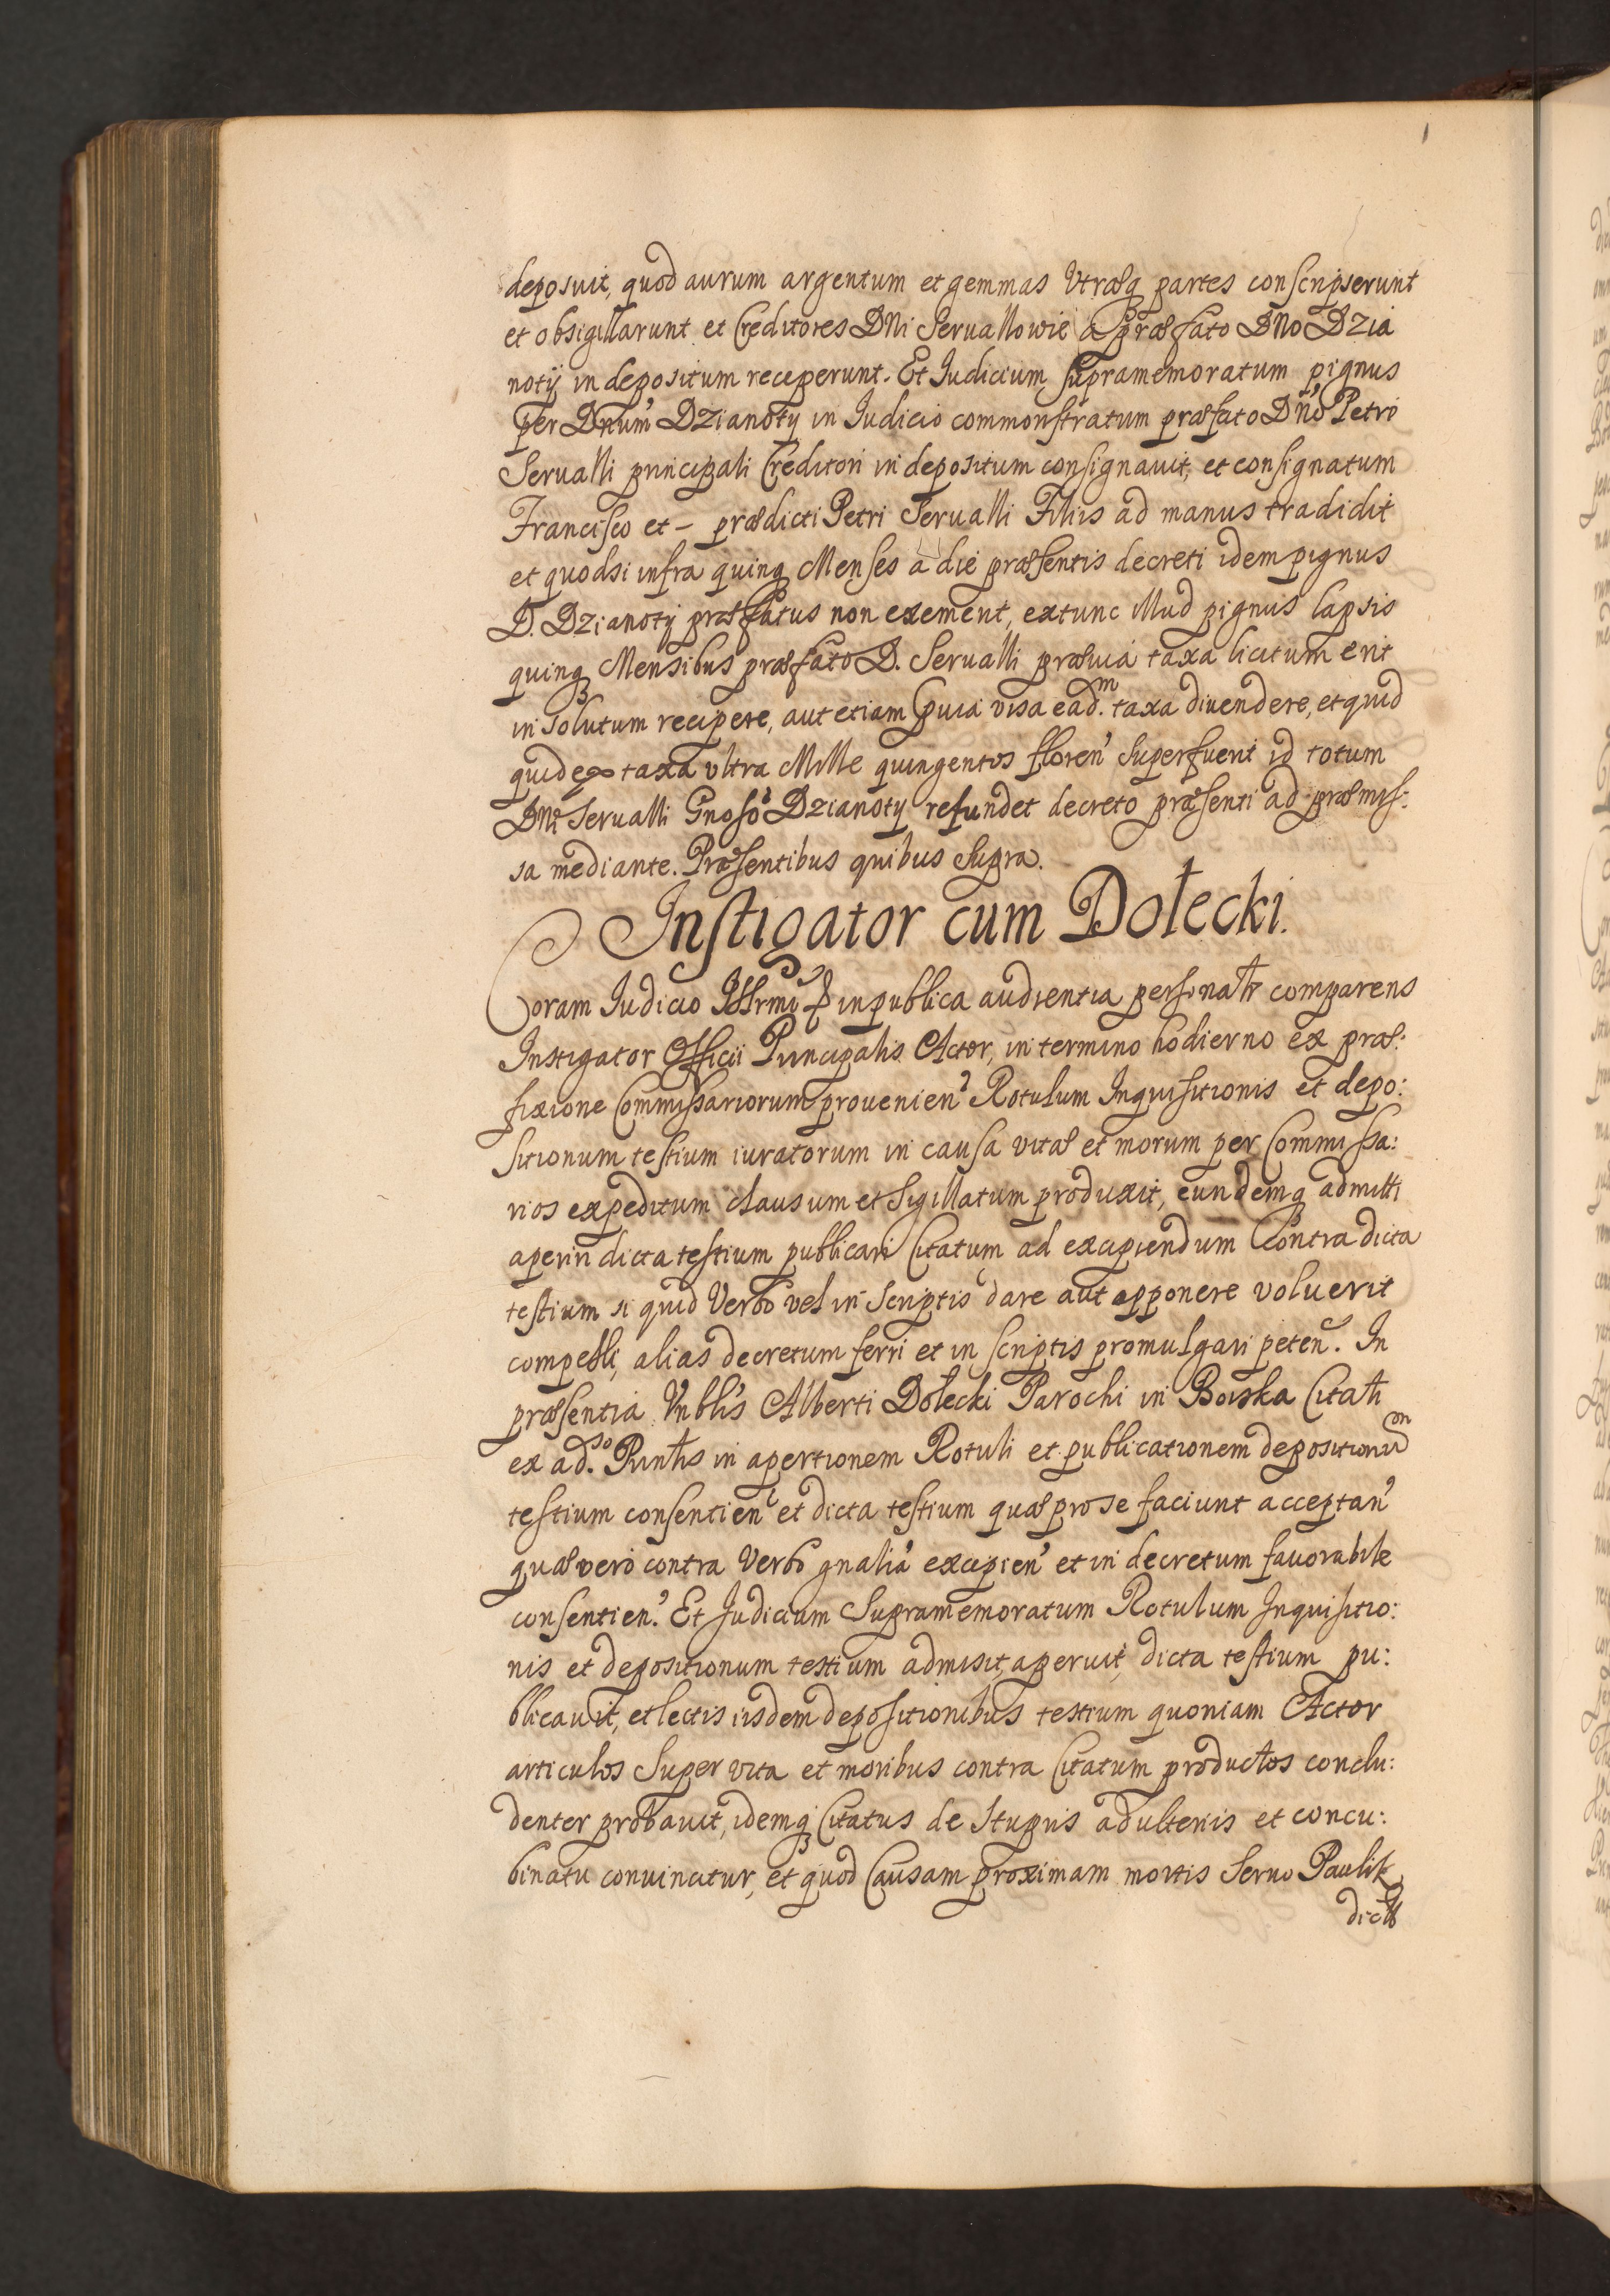 deposuit, quod aurum argentum et gemmas Utræq partes conscripserunt
et obsigillarunt et Creditores DNi Seruallowie a præfato DNo Dzia
notÿ in depositum receperunt. Et Iudicium supramemoratum pignus
per Dnum Dzianoty in Iudicio commonstratum præfato Dño Petro
Serualli principali Creditori in depositum consignauit, et consignatum
Francisco et – prædicti Petri Serualli Filiis ad manus tradidit
et quodsi infra quinq Menses a die præsentis decreti idem pignus
D. Dzianoty præfatus non exement, extunc illud pignus lapsis
quinq Mensibus præfato D. Serualli præuia taxa licitum erit
in solutum recipere, aut etiam præuia visa ead.m taxa diuendere, et quid
quid ex taxa ultra Mille quingentos floren' superfuerit id totum
DNs Serualli Gnoso Dzianoty refundet decreto præsenti ad præmis:
sa mediante. Præsentibus quibus supra.
Instigator cum Dołecki.
Coram Iudicio Illrmi in publica audientia personalr comparens
Instigator Officii Principalis Actor, in termino hodierno ex præ:
fixione Commissariorum prouenien' Rotulum Inquisitionis et depo:
sitionum testium iuratorum in causa vitæ et morum per Commissa:
rios expeditum clausum et sigillatum produxit, eundemq admitti
aperiri dicta testium publicari Citatum ad excipiendum Contra dicta
testium si quid Verbo vel in Scriptis dare aut opponere voluerit
compelli, alias decretum ferri et in scriptis promulgari peten'. In
præsentia Vnblis Alberti Dołecki Parochi in Boiska Citati
ex ad.so Pnntis in apertionem Rotuli et publicationem depositionum
testium consentien' et dicta testium quæ pro se faciunt acceptan'
quæ vero contra Verbo gnalia excipien' et in decretum fauorabile
consentien'. Et Judicium Supramemoratum Rotulum Inquisitio:
nis et depositionum testium admisit, aperuit, dicta testium pu:
blicauit, et lectis iisdem depositionibus testium quoniam Actor
articulos Super vita et moribus contra Citatum productos conclu:
denter probauit, idemq Citatus de Stupris adulteriis et concu:
binatu conuincitur, et quod Causam proximam mortis Seruo Paulik
dicto